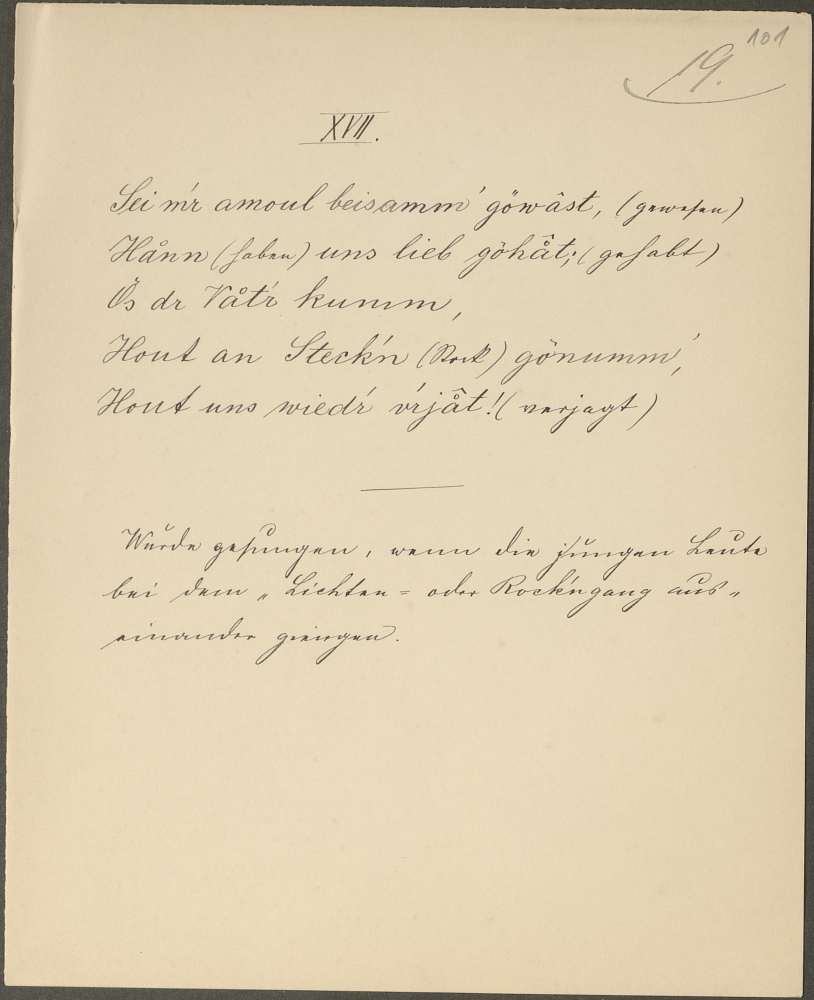 101
19.
XVII.
Sei m'r amoul beisamm' göwâst, (gewesen)
Hånn (haben) uns lieb göhåt; (gehabt)
Ös dr Våt'r kumm,
Hout an Steck'n (Stock) gönumm',
Hout uns wied'r v'rjåt! (verjagt)
Wurde gesungen, wenn die jungen Leute
bei dem „Lichten= oder Rock'ngang aus„
einander giengen.